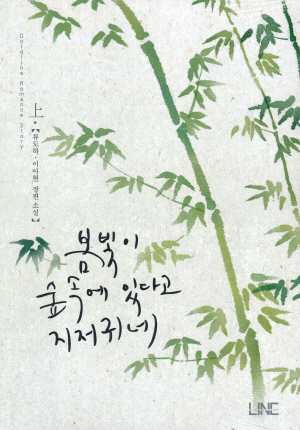 Goldline Romance Story
上
【류도하·이아현 장편 소설】
봄빛이
숲속에 있다고
지저귀네
LINE